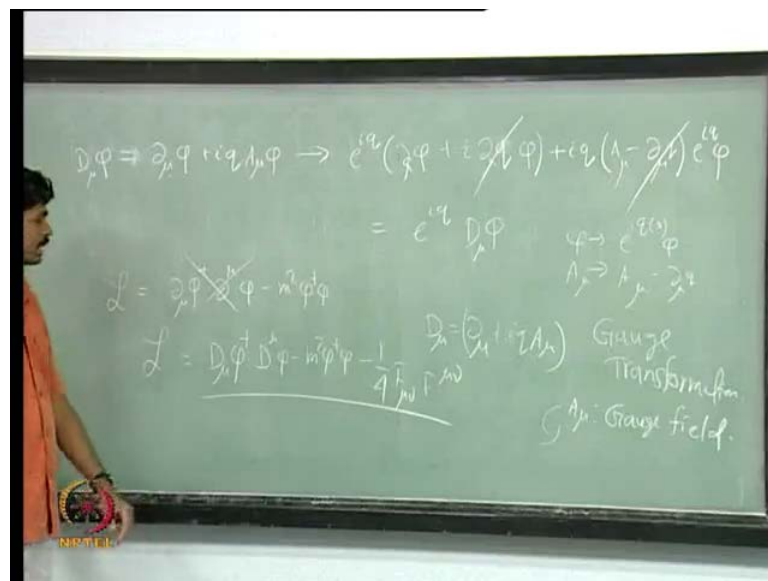 D_μφ ⇒ ∂_μφ + iqA_μφ → e^{iq}(∂_μφ + i∂_μq φ) + iq(A_μ - ∂_μq)e^{iq}φ
= e^{iq} D_μφ
φ → e^{q(x)}φ
A_μ → A_μ - ∂_μq
L = ∂_μφ^† ∂^μφ - m²φ^†φ
L = D_μφ^† D^μφ - m²φ^†φ - 1/4 F_{μν} F^{μν}
D_μ = (∂_μ + iqA_μ)
Gauge
Transformation.
A_μ: Gauge field.
NPTEL